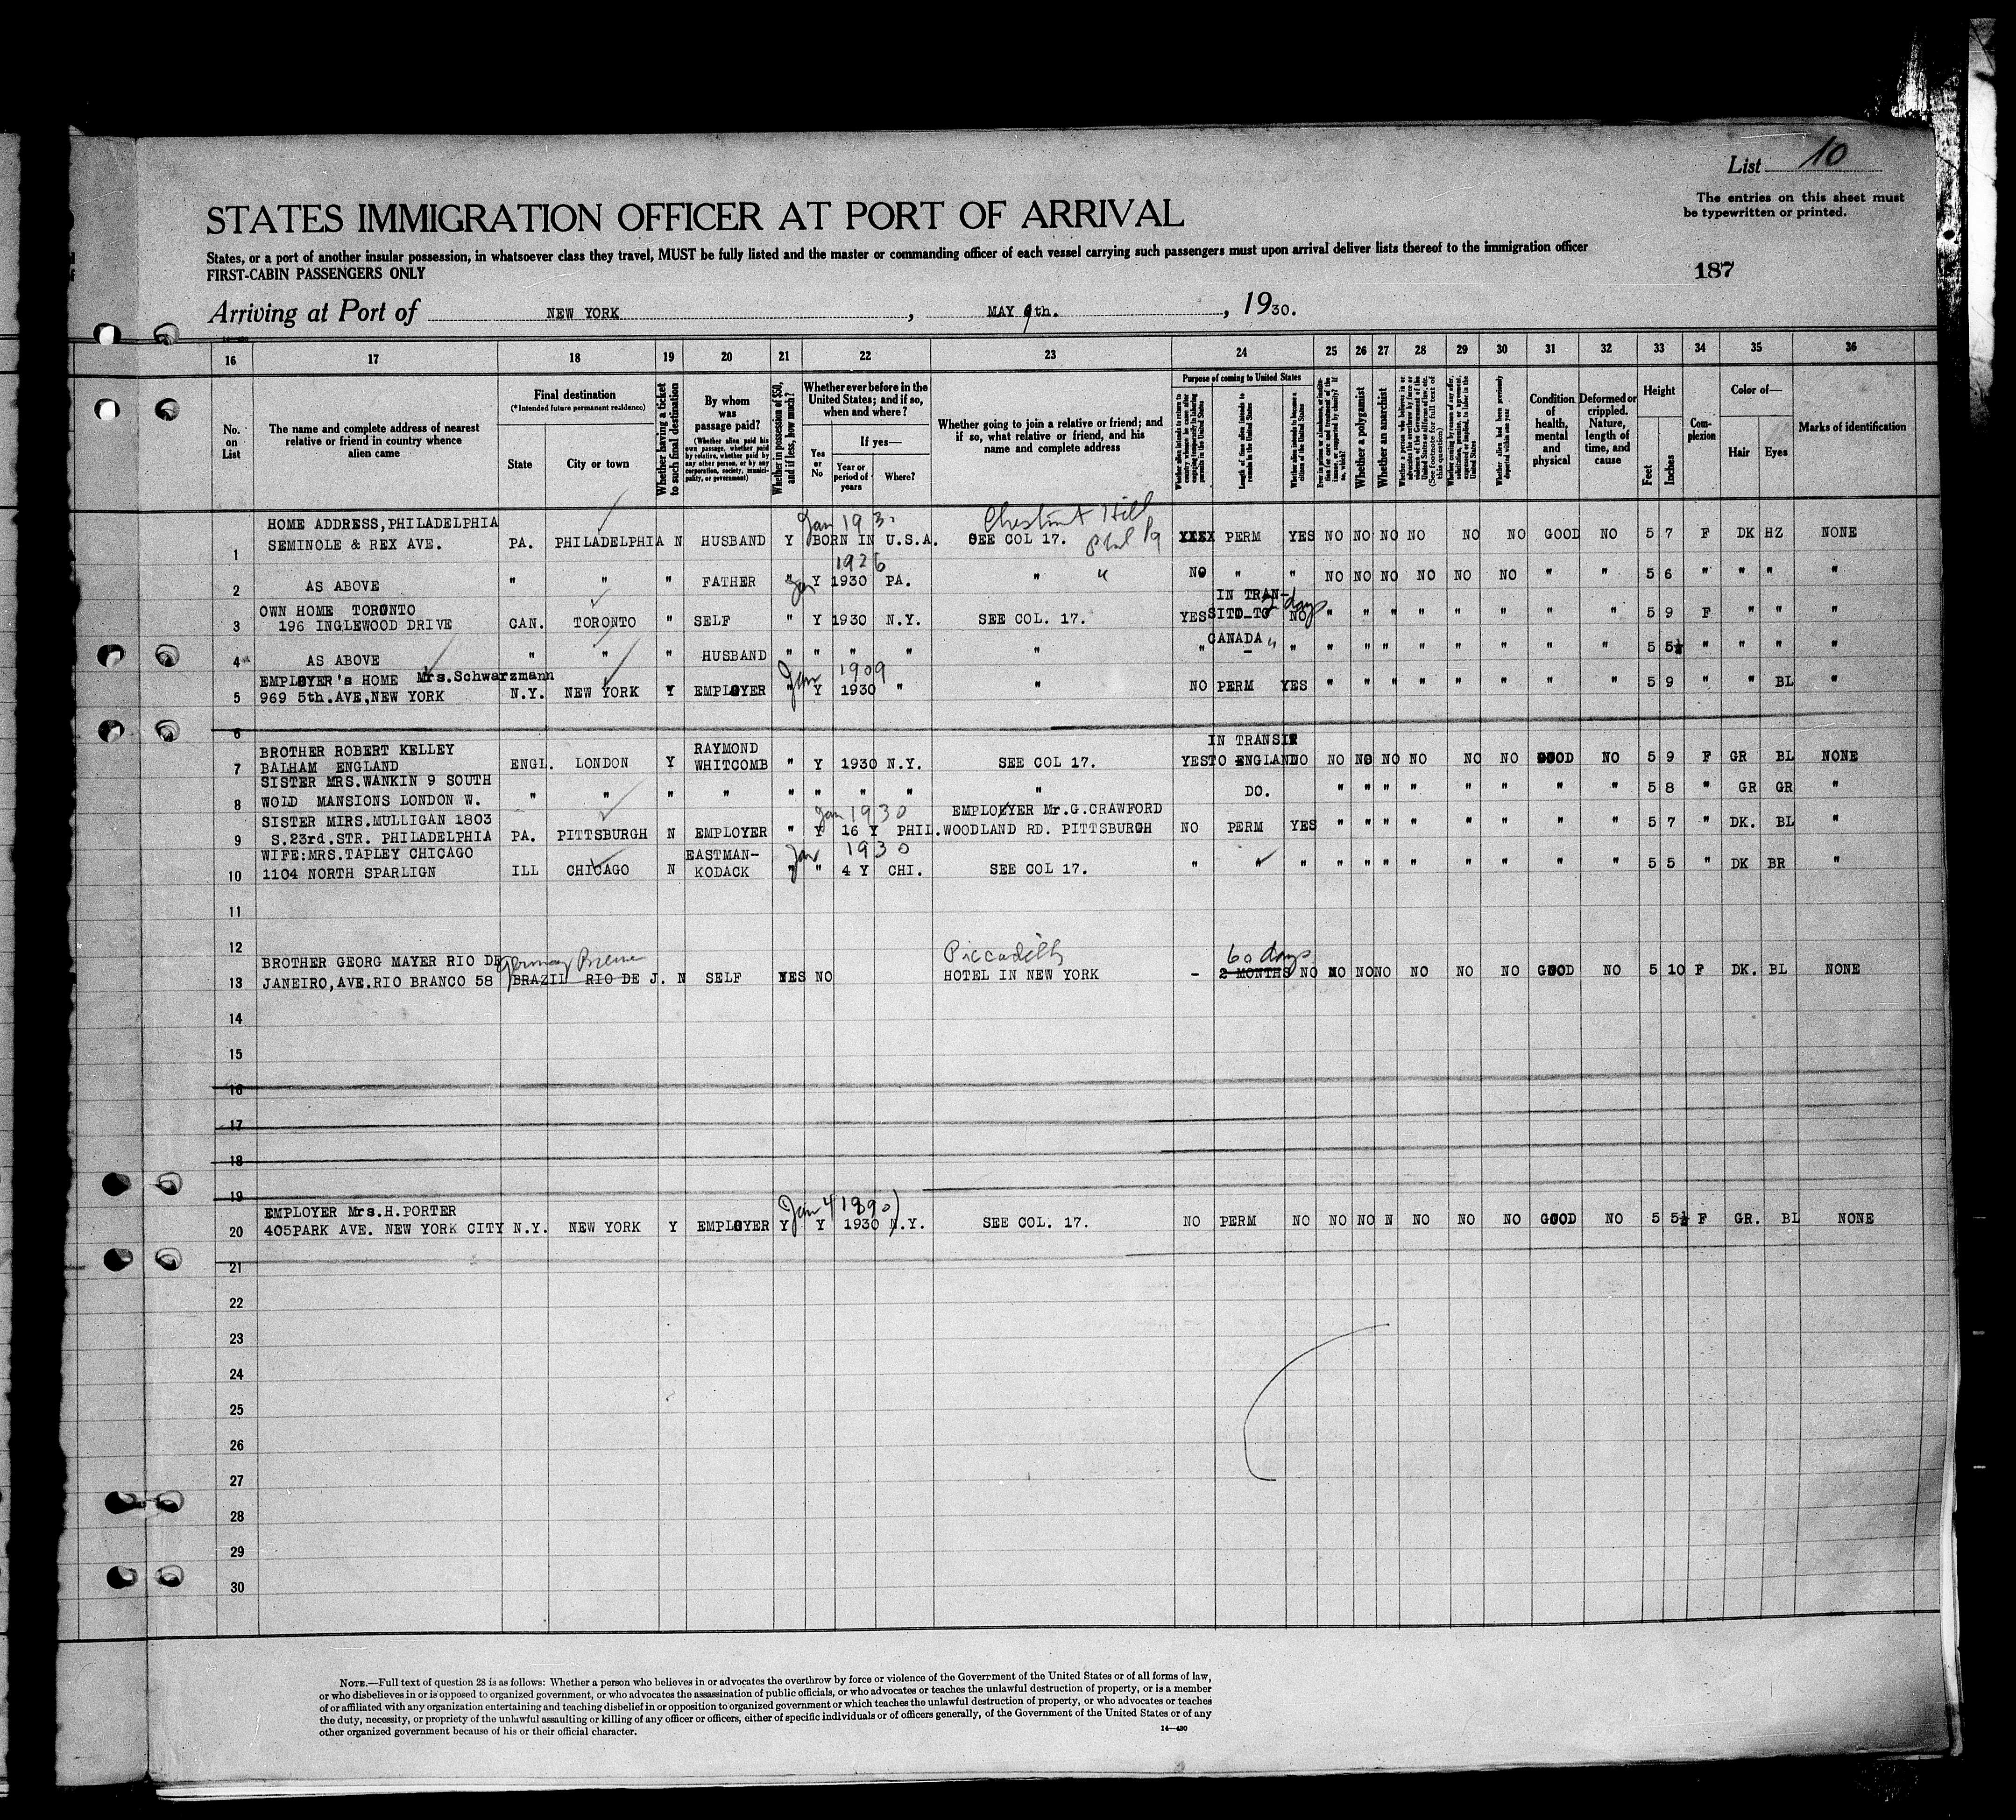 List 10
The entries on this sheet must
be typewritten or printed.
STATES IMMIGRATION OFFICER AT PORT OF ARRIVAL
States, or a port of another insular possession, in whatsoever class they travel, MUST be fully listed and the master or commanding officer of each vessel carrying such passengers must upon arrival deliver lists thereof to the immigration officer
FIRST-CABIN PASSENGERS ONLY
187
Arriving at Port of NEW YORK , MAY 9th. , 1930.
16 17 18 19 20 21 22 23 24 25 26 27 28 29 30 31 32 33 34 35 36
No. on List
The name and complete address of nearest relative or friend in country whence alien came
Final destination
(*Intended future permanent residence)
State City or town
Whether having a ticket to such final destination
By whom was passage paid?
(Whether alien paid his own passage, whether paid by relative, whether paid by any other person, or by any corporation, society, municipality, or government)
Whether in possession of $50, and if less, how much?
Whether ever before in the United States; and if so, when and where?
Yes or No
If yes—
Year or period of years Where?
Whether going to join a relative or friend; and if so, what relative or friend, and his name and complete address
Purpose of coming to United States
Whether alien intends to return to country whence he came after engaging temporarily in laboring pursuits in the United States
Length of time alien intends to remain in the United States
Whether alien intends to become a citizen of the United States
Whether a polygamist
Whether an anarchist
Condition of health, mental and physical
Deformed or crippled. Nature, length of time, and cause
Height
Feet Inches
Complexion
Color of—
Hair Eyes
Marks of identification
HOME ADDRESS, PHILADELPHIA Jan 193 Chestnut Hill
1 SEMINOLE & REX AVE. PA. PHILADELPHIA N HUSBAND Y BORN IN U.S.A. SEE COL 17. Phil Pa XXXX PERM YES NO NO NO NO NO NO GOOD NO 5 7 F DK HZ NONE
1926
2 AS ABOVE " " " FATHER " Y 1930 PA. " " NO " " NO NO NO NO NO NO " " 5 6 " " " "
OWN HOME TORONTO IN TRAN- 2 days
3 196 INGLEWOOD DRIVE CAN. TORONTO " SELF " Y 1930 N.Y. SEE COL. 17. YES SIT TO NO " " " " " " " " 5 9 F " " "
CANADA
4 AS ABOVE " " " HUSBAND " " " " " " " " " " " " " " " " " 5 5½ " " " "
EMPLOYER's HOME Mrs.Schwarzmann Jan 1909
5 969 5th.AVE,NEW YORK N.Y. NEW YORK Y EMPLOYER " Y 1930 " " NO PERM YES " " " " " " " " 5 9 " " BL "
6
BROTHER ROBERT KELLEY RAYMOND IN TRANSIT
7 BALHAM ENGLAND ENGL. LONDON Y WHITCOMB " Y 1930 N.Y. SEE COL 17. YES TO ENGLAND NO NO NO NO NO NO NO GOOD NO 5 9 F GR BL NONE
SISTER MRS.WANKIN 9 SOUTH
8 WOLD MANSIONS LONDON W. " " " " " " " " " DO. " " " " " " " " 5 8 " GR GR "
SISTER MIRS.MULLIGAN 1803 Jan 1930 EMPLOYER Mr.G.CRAWFORD
9 S.23rd.STR. PHILADELPHIA PA. PITTSBURGH N EMPLOYER " Y 16 Y PHIL. WOODLAND RD. PITTSBURGH NO PERM YES " " " " " " " " 5 7 " DK. BL "
WIFE:MRS.TAPLEY CHICAGO EASTMAN- Jan 1930
10 1104 NORTH SPARLIGN ILL CHICAGO N KODACK " " 4 Y CHI. SEE COL 17. " " " " " " " " " " " 5 5 " DK BR "
11
12
BROTHER GEORG MAYER RIO DE Germany Piccadilly 60 days
13 JANEIRO,AVE.RIO BRANCO 58 BRAZIL RIO DE J. N SELF YES NO HOTEL IN NEW YORK - 2 MONTHS NO NO NO NO NO NO NO GOOD NO 5 10 F DK. BL NONE
14
15
16
17
18
19
EMPLOYER Mrs.H.PORTER Jan 4 1890)
20 405PARK AVE. NEW YORK CITY N.Y. NEW YORK Y EMPLOYER Y Y 1930 N.Y. SEE COL. 17. NO PERM NO NO NO N NO NO NO GOOD NO 5 5½ F GR. BL NONE
21
22
23
24
25
26
27
28
29
30
NOTE.—Full text of question 28 is as follows: Whether a person who believes in or advocates the overthrow by force or violence of the Government of the United States or of all forms of law,
or who disbelieves in or is opposed to organized government, or who advocates the assassination of public officials, or who advocates or teaches the unlawful destruction of property, or is a member
of or affiliated with any organization entertaining and teaching disbelief in or opposition to organized government or which teaches the unlawful destruction of property, or who advocates or teaches
the duty, necessity, or propriety of the unlawful assaulting or killing of any officer or officers, either of specific individuals or of officers generally, of the Government of the United States or of any
other organized government because of his or their official character.
14—430